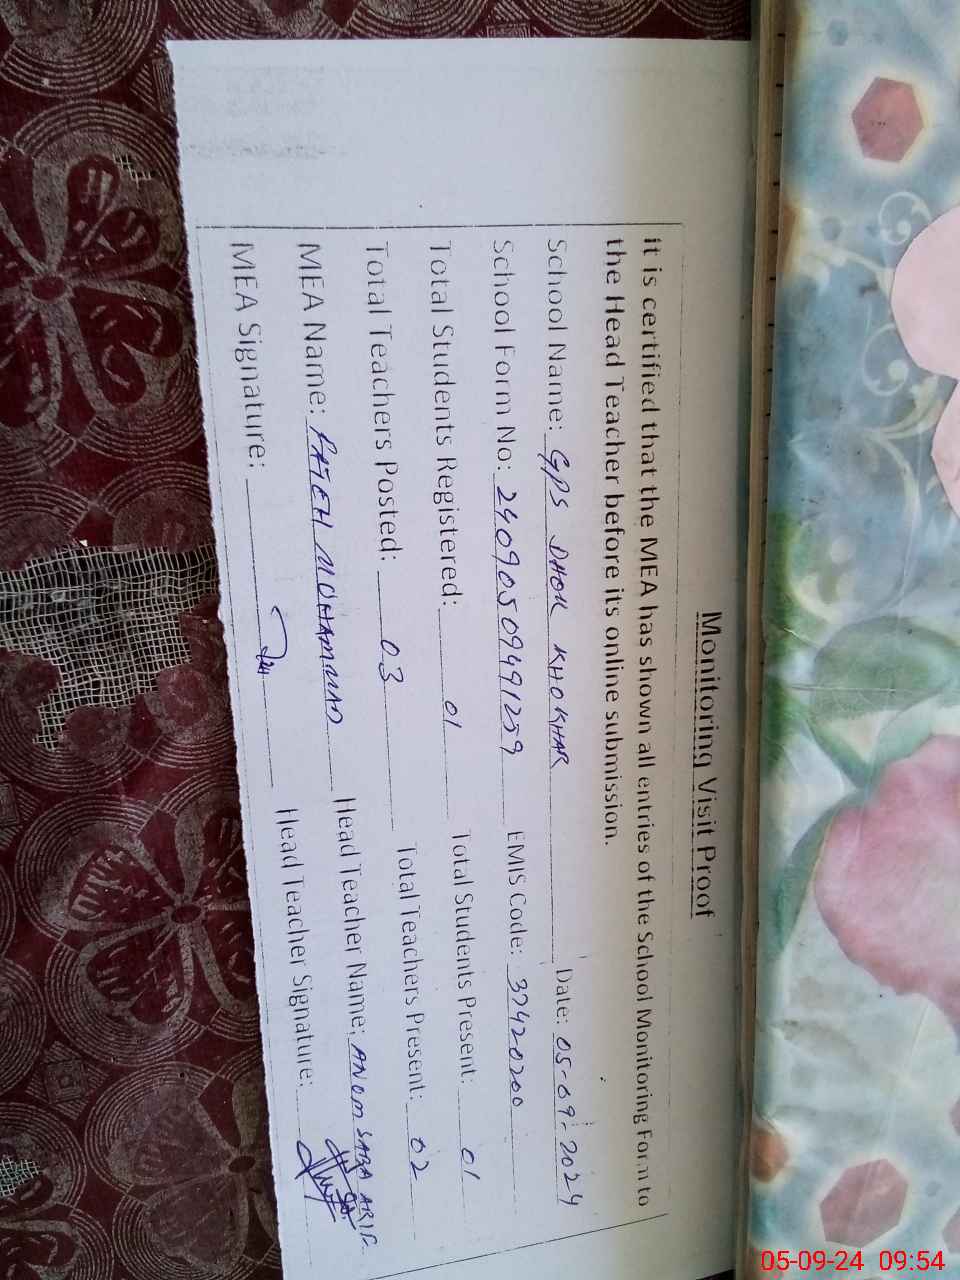 Monitoring Visit Proof
it is certified that the MEA has shown all entries of the School Monitoring Form to
the Head Teacher before its online submission.
School Name: GPS DHOK KHOKHAR Date: 05-09-2024
School Form No: 24090509491259 EMIS Code: 37420200
Total Students Registered: 01 Total Students Present: 01
Total Teachers Posted: 03 Total Teachers Present: 02
MEA Name: FATEH MUHAMMAD Head Teacher Name: ANUM SABA ARIF
MEA Signature: Head Teacher Signature:
05-09-24 09:54